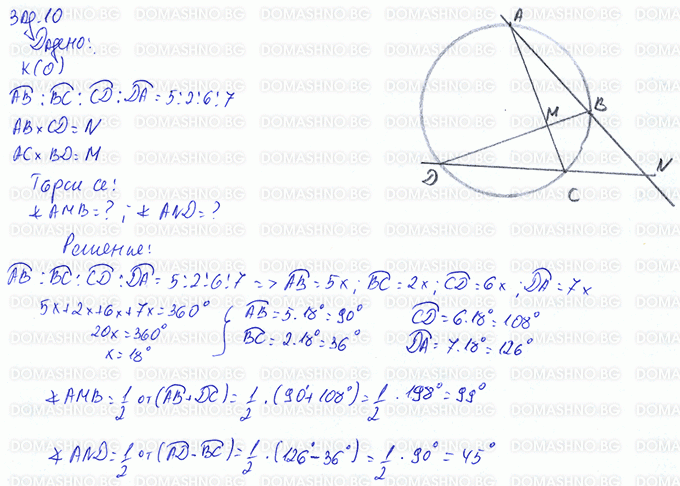 Зад.10
Дадено:
k(O)
AB:BC:CD:DA=5:2:6:7
AB×CD=N
AC×BD=M
Търси се:
∢AMB=?; ∢AND=?
Решение:
AB:BC:CD:DA=5:2:6:7 => AB=5x; BC=2x; CD=6x; DA=7x
5x+2x+6x+7x=360°
20x=360°
x=18°
AB=5.18°=90°
BC=2.18°=36°
CD=6.18°=108°
DA=7.18°=126°
∢AMB=1/2 от (AB+DC)=1/2.(90°+108°)=1/2.198°=99°
∢AND=1/2 от (AD-BC)=1/2.(126°-36°)=1/2.90°=45°
A
B
M
D
C
N
DOMASHNO.BG